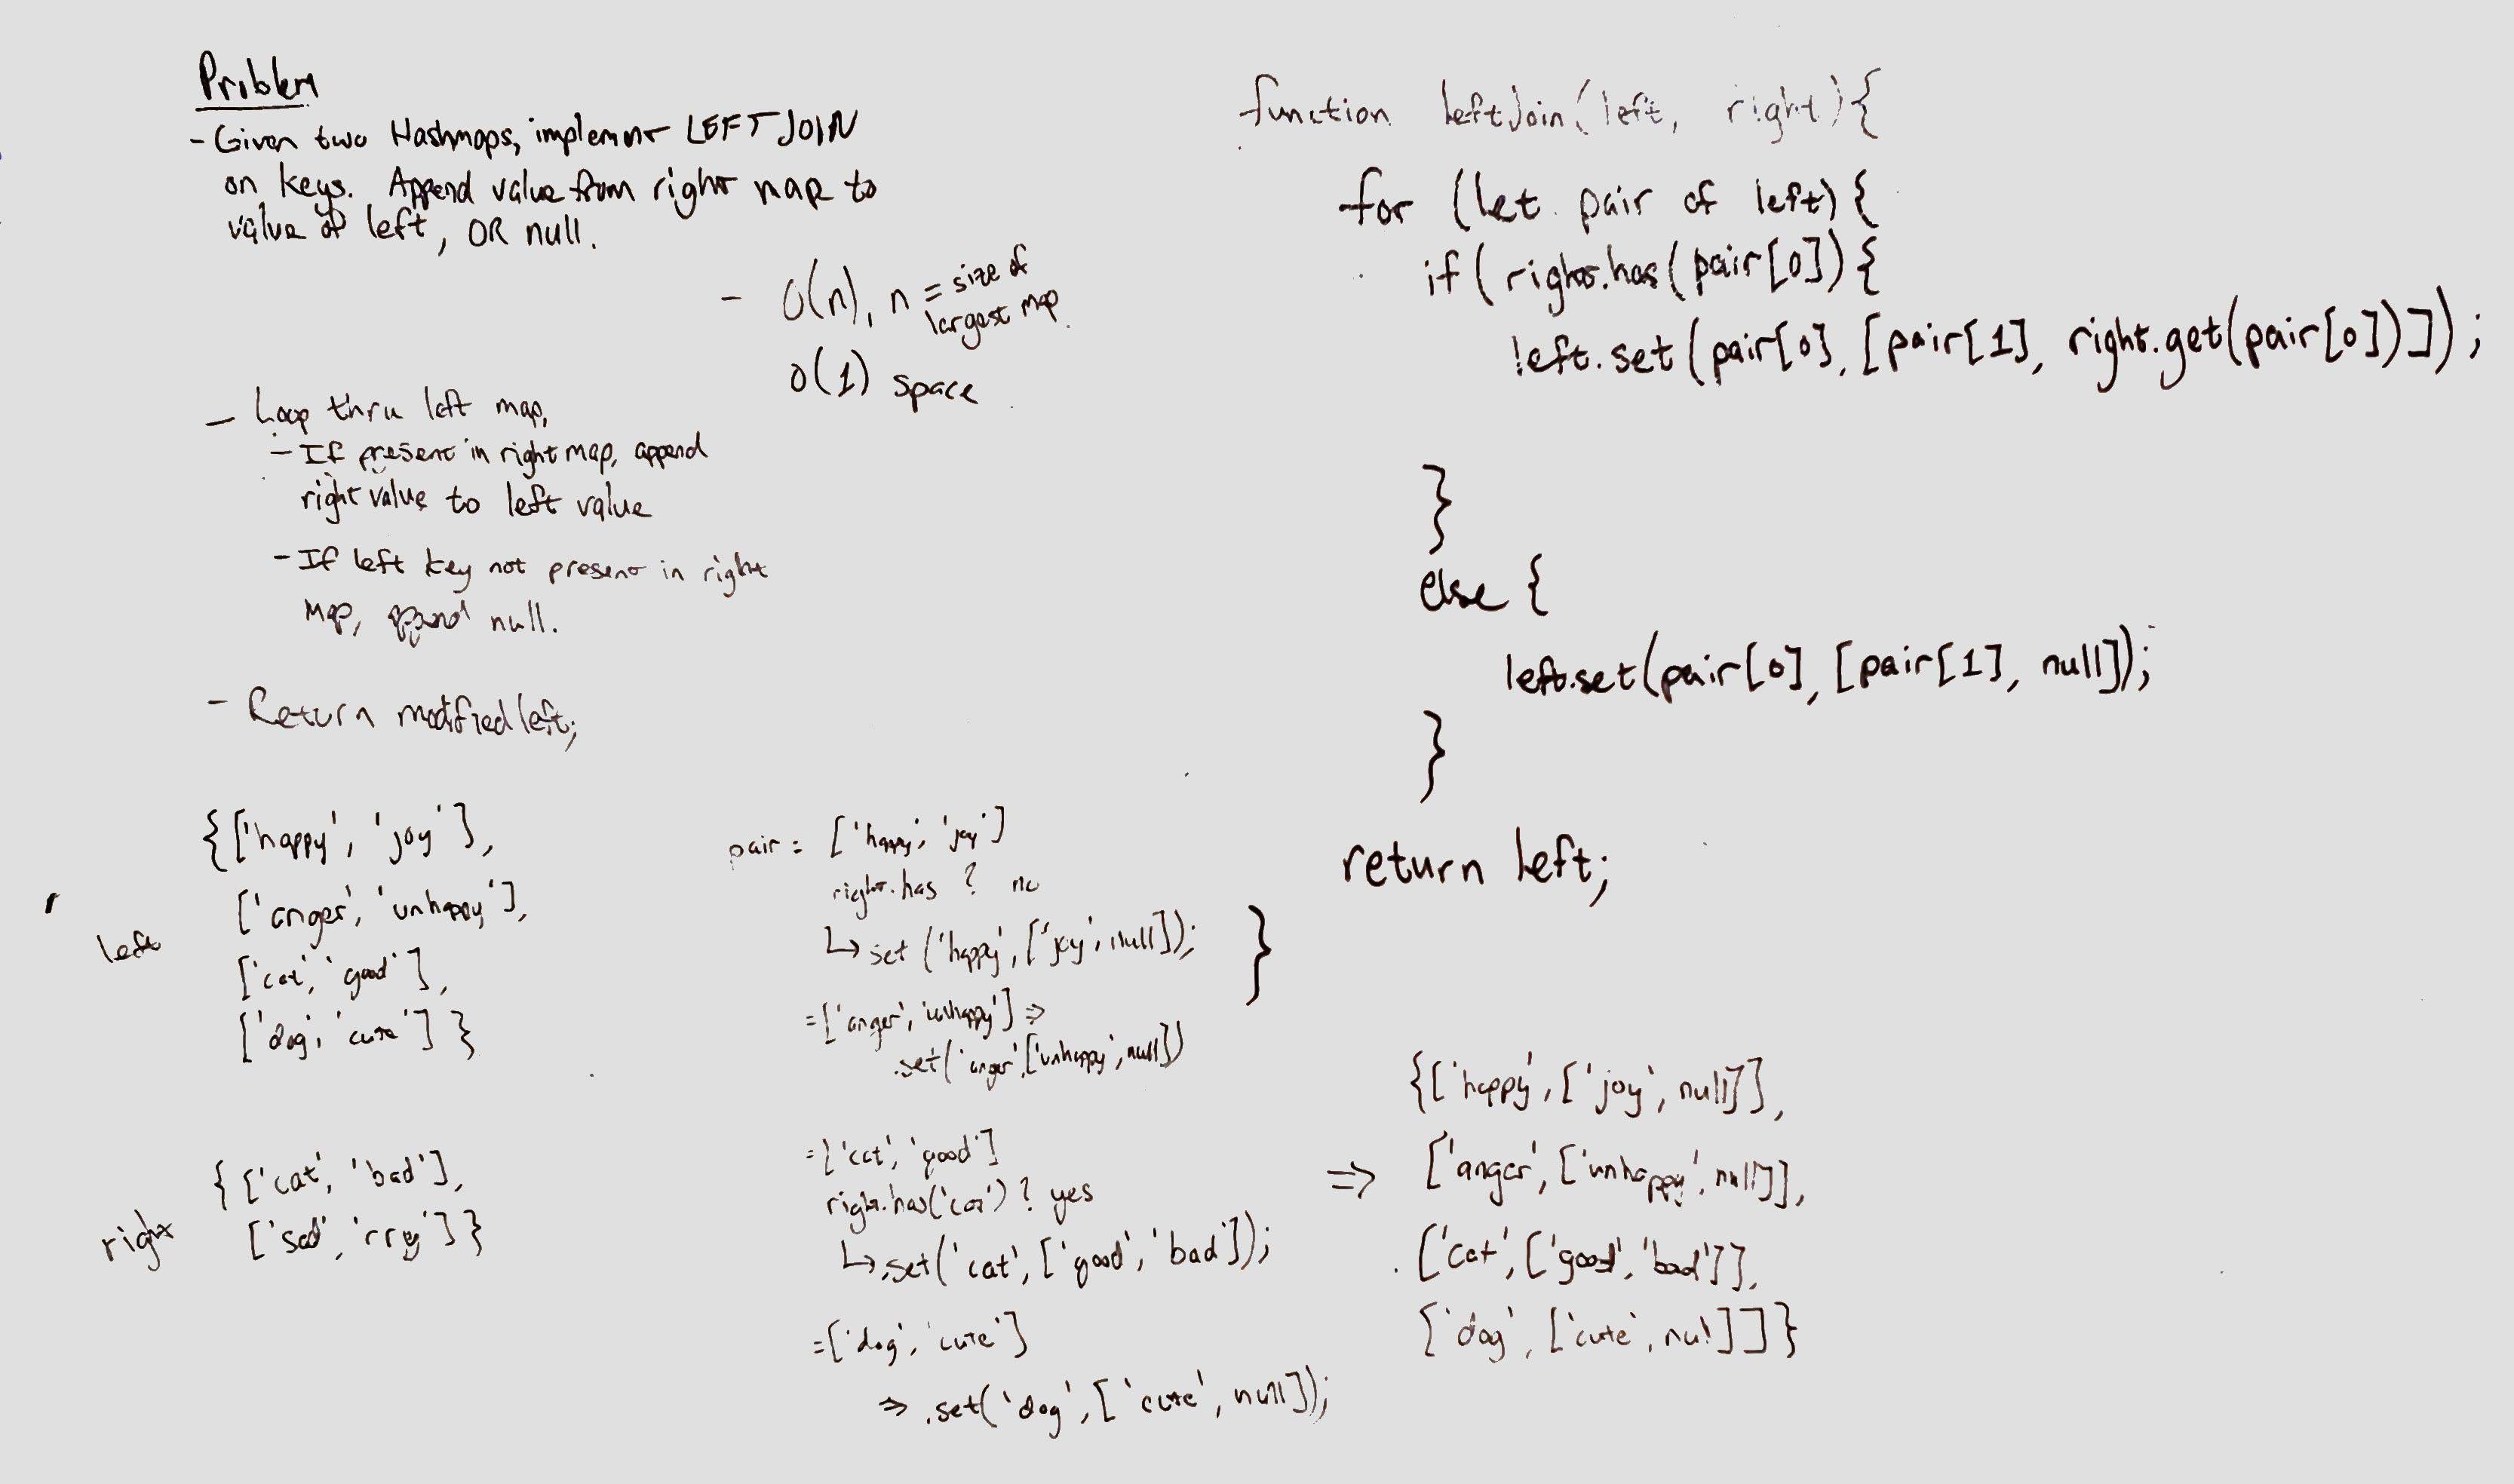 Problem
- Given two Hashmaps, implement LEFT JOIN
on keys. Append value from right map to
value of left, OR null.
- O(n), n = size of
largest map
O(1) space
- Loop thru left map,
- If present in right map, append
right value to left value
- If left key not present in right
map, append null.
- Return modified left;
{['happy', 'joy'],
['anger', 'unhappy'],
left
['cat', 'good'],
['dog', 'cute'] }
{ ['cat', 'bad'],
right ['sad', ' ']}
pair = ['happy', 'joy']
right.has ? no
↳ set ('happy', ['joy', null]);
= ['anger', 'unhappy'] ⇒
.set('anger', ['unhappy', null])
= ['cat', 'good']
right.has('cat') ? yes
↳ .set('cat', ['good', 'bad']);
= ['dog', 'cute']
⇒ .set('dog', ['cute', null]);
function leftJoin(left, right){
for (let pair of left){
if(right.has(pair[0]){
left.set(pair[0], [pair[1], right.get(pair[0])]);
}
else {
left.set(pair[0], [pair[1], null]);
}
return left;
}
{['happy', ['joy', null]],
⇒ ['anger', ['unhappy', null]],
['cat', ['good', 'bad']],
['dog', ['cute', null]]}